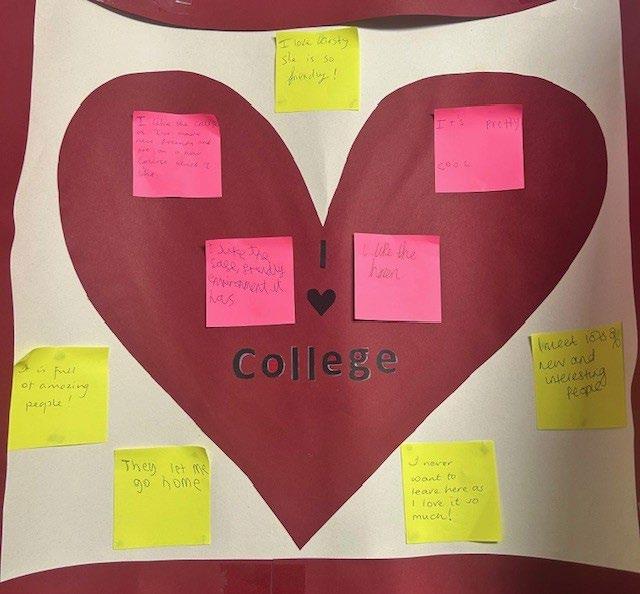 I love
she is so
friendly!
I like the
as I've made
new friends and
on a new
course which I
like.
It's pretty
cool
I like the
safe, friendly
environment it
has
I like the
I
♥
College
It is full
of amazing
people!
I meet lots of
new and
interesting
people
They let me
go home
I never
want to
leave here as
I love it so
much!